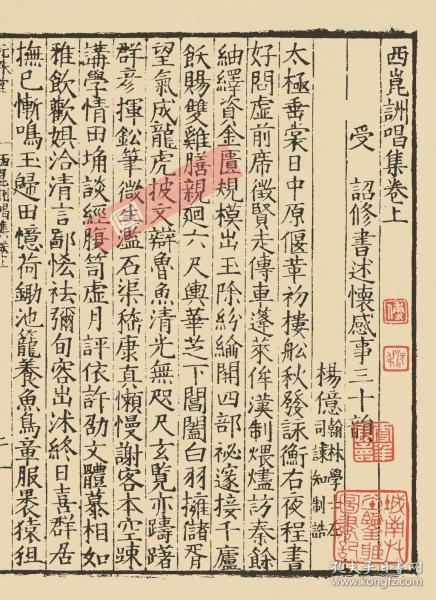 西崑詶唱集卷上
受 詔修書述懷感事三十韻
楊億 翰林學士左
司諫知制誥
太極垂裳日中原偃革初樓舩秋發詠衡石夜程書
好問虛前席徵賢走傳車蓬萊侔漢制煨燼訪秦餘
紬繹資金匱規模出玉除紛綸開四部祕邃接千廬
飫賜雙雞膳親廻六尺輿華芝下閶闔白羽擁儲胥
望氣成龍虎披文辯魯魚清光無咫尺玄覽亦躊躇
群彥揮鈆筆微生濫石渠嵇康真懶慢謝客本空疎
講學情田埆談經腹笥虛月評依許劭文體慕相如
雅飲歡娯洽清言鄙悋祛彌旬容出沐終日喜群居
撫已慚鳴玉歸田憶荷鋤池籠養魚鳥章服裹猿狙
西崑詶唱集卷上